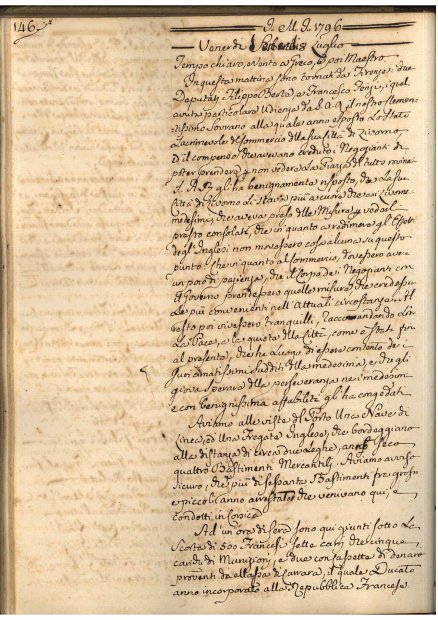 146.
I. M. I. 1796
Venerdì Luglio
Tempo chiaro, e Vento a Greco, e poi Maestro
In questa mattina sono tornati da Firenze i due
Deputati Filippo Berta, e Francesco i quali
avuta particolare Udienza da S. A. R. il nostro Clemen-
tissimo Sovrano alla quale anno esposto lo stato
Lacrimevole del Commercio della sua Città di Livorno,
e il compenso che avevano creduto i Negozianti di
poter prendere p. non vedere la Piazza del tutto rovinata
S. A. R. gl'ha benignamente risposto, che la sua
Città di Livorno li stava più a cuore che ai Livornesi
medesimi, che aveva preso delle Misure p. vedarli
presto consolati, che in quanto a redimere gl'Effetti
degl'Inglesi non movessero cosa alcuna su questo
punto. Che in quanto al Commercio, dovessero ave-
re un poco di pazienza, che il Corpo de' Negozianti con
il Governo prendessero quelle misure che credesse-
ro le più convenienti nell'attuali circostanze. Al
resto poi vivessero tranquilli, raccomandando Lo-
ro la Pace, e la quiete della Città, come è stata fin
al presente, che ha luogo di essere contento dei
fucilmatissimi Sudditi della medesima, e che gli
giova sperare della perseveranza nei medesimi
e con benignissima affabilità gl'ha congedati
Abbiamo alla vista del Porto Una Nave di
Linea, ed una Fregata Inglese, che bordeggiano
alla distanza di circa due leghe, anno seco
quattro Bastimenti Mercantili. Abbiamo avviso
sicuro, che più di sessanta Bastimenti fra grossi
e piccoli anno arrestato che venivano qui, e
condotti in Corsica
Ad un'ora di sera sono qui giunti sotto la
Scorta di 500 Francesi sette carri, che cinque
carichi di Munizioni, e due con cassetta di denaro
proventi da Massa di Carrara, il quale Ducato
anno incorporato alla Repubblica Francese.